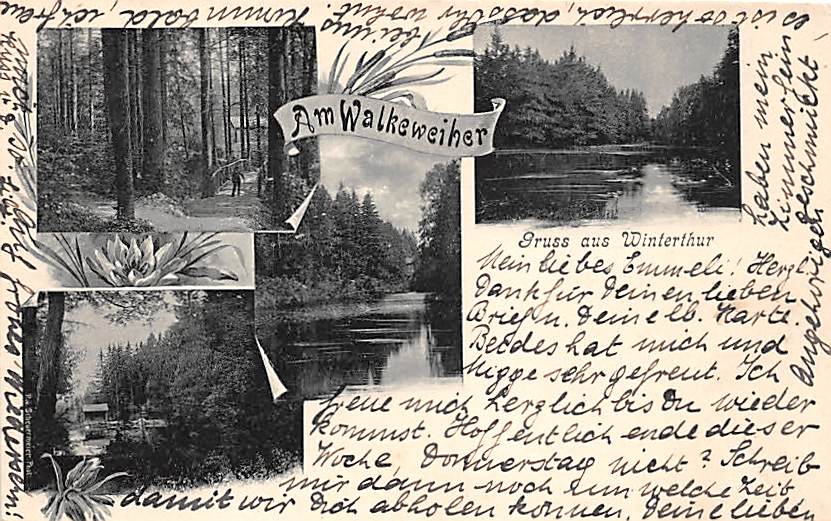 Am Walkeweiher
Gruss aus Winterthur
Mein liebes Emmeli! Herzl.
Dank für Deinen lieben
Brief u. Deine lb. Karte.
Beides hat mich und
Migge sehr gefreut. Ich
freue mich herzlich bis Du wieder
kommst. Hoffentlich ende dieser
Woche, Donnerstag nicht? Schreib
mir dann noch um welche Zeit
damit wir Dich abholen können, Deine lieben
Angehörigen
haben mein
Zimmer fein
geschmückt
es ist so herrlich, dass Ihr
bei uns wohnt. Komm bald, ich freu
mich
Gruss u.
Auf frohes Wiedersehn!